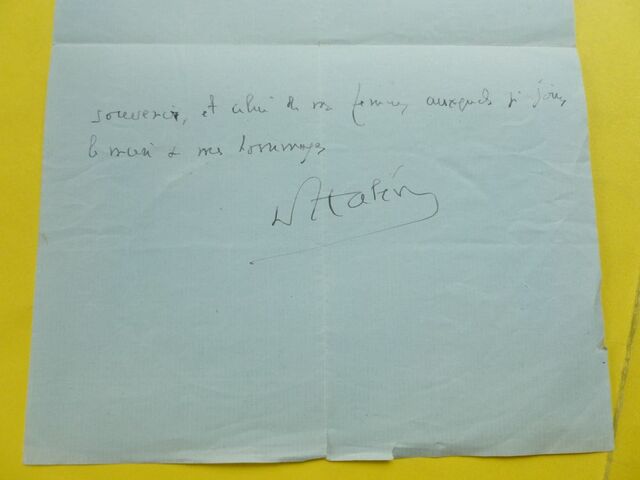 souvenir, et celui de ma femme, auxquels je joins,
le mien & mes hommages